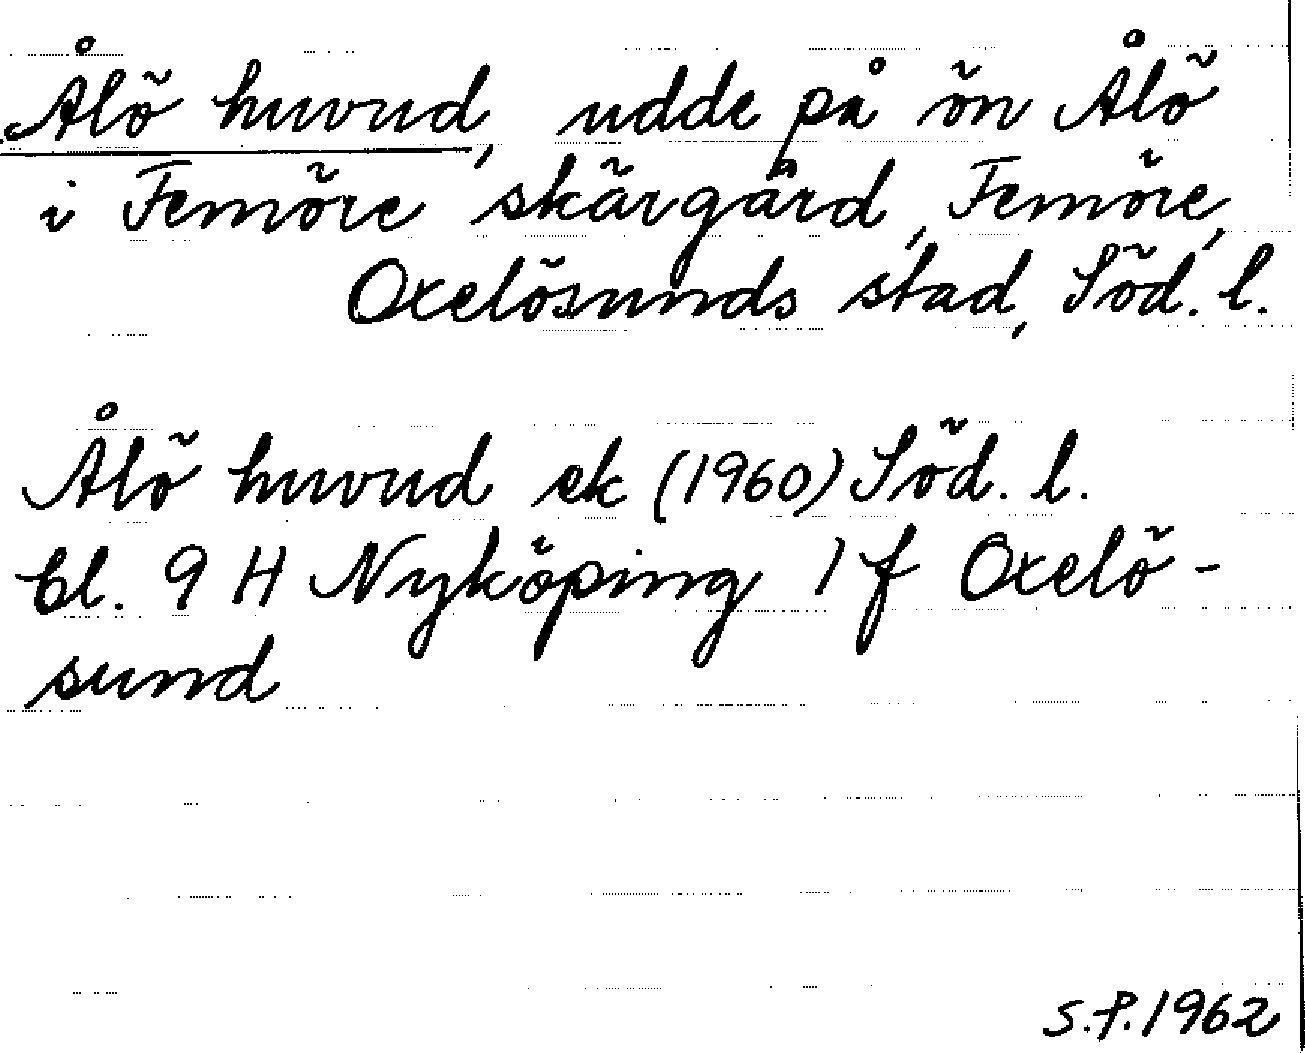 Ålö huvud, udde på ön Ålö
i Femöre skärgård, Femöre,
Oxelösunds stad, Söd. l.
Ålö huvud ek (1960) Söd. l.
Bl. 9 H Nyköping 1 f Oxelö-
sund
S.P. 1962